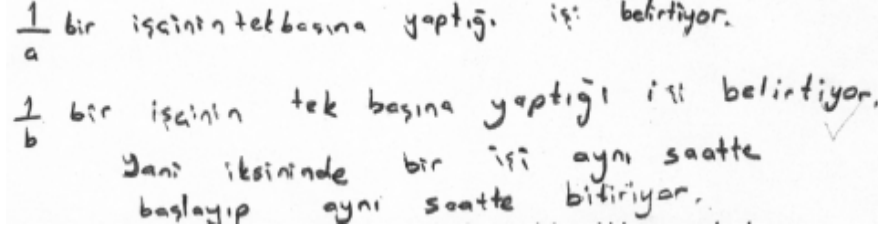 1/a bir işçinin tek başına yaptığı işi belirtiyor.
1/b bir işçinin tek başına yaptığı işi belirtiyor.
Yani iksininde bir işi aynı saatte
başlayıp aynı saatte bitiriyor.